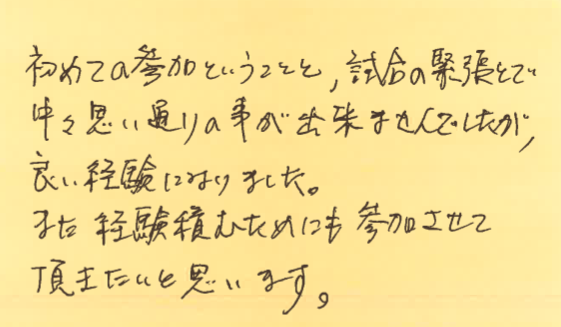 初めての参加ということと,試合の緊張とで
中々思い通りの事が出来ませんでしたが,
良い経験になりました。
また経験積むためにも参加させて
頂きたいと思います。